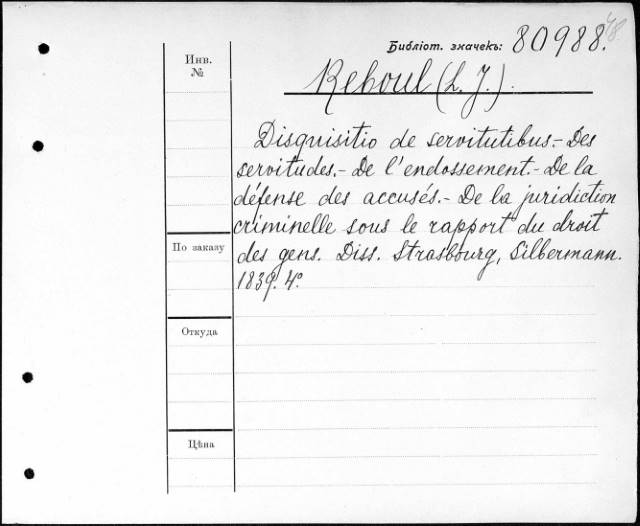 Библіот. значекъ: 80988.
Инв. №
Reboul (L. J.).
Disquisitio de servitutibus.- Des
servitudes.- De l'endossement.- De la
défense des accusés.- De la juridiction
criminelle sous le rapport du droit
По заказу
des gens. Diss. Strasbourg, Silbermann.
1839. 4°.
Откуда
Цѣна